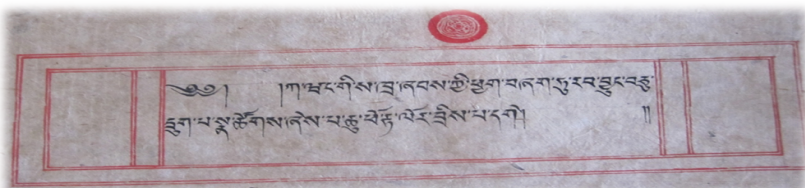 ༄༅། །ཀ་ཤང་གིས་བླ་ཞབས་ཀྱི་ཕྱག་བཞག་ཏུ་རབ་བྱུང་བཅུ་
དྲུག་པ་སྣ་ཚོགས་ཞེས་པ་ཆུ་ཕོ་རྟ་ལོར་བྲིས་པ་དགེ། ༎